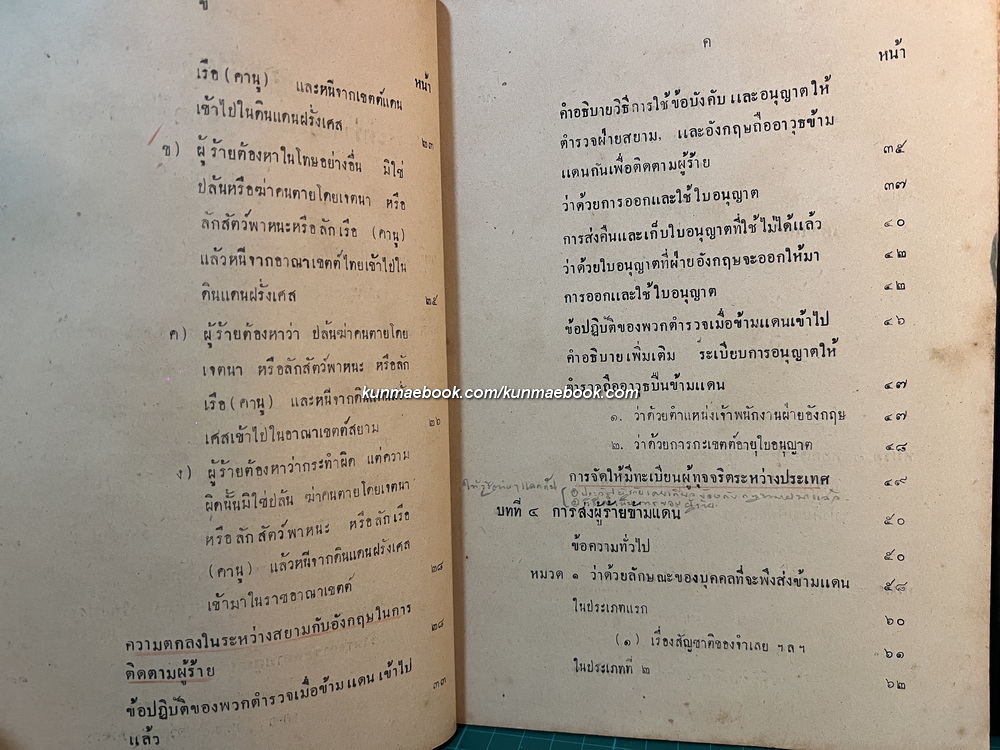 ข
หน้า
เรือ (คานู) และหนีจากเขตต์แดน
เข้าไปในดินแดนฝรั่งเศส ๒๓
ข) ผู้ร้ายต้องหาในโทษอย่างอื่น มิใช่
ปลันหรือฆ่าคนตายโดยเจตนา หรือ
ลักสัตว์พาหนะหรือลักเรือ (คานู)
แล้วหนีจากอาณาเขตต์ไทยเข้าไปใน
ดินแดนฝรั่งเศส ๒๕
ค) ผู้ร้ายต้องหาว่า ปลันฆ่าคนตายโดย
เจตนา หรือลักสัตว์พาหนะ หรือลัก
เรือ (คานู) และหนีจากดินแดนฝรั่ง
เศสเข้าไปในอาณาเขตต์สยาม ๒๖
ง) ผู้ร้ายต้องหาว่ากระทำผิด แต่ความ
ผิดนั้นมิใช่ปลัน ฆ่าคนตายโดยเจตนา
หรือลักสัตว์พาหนะ หรือลักเรือ
(คานู) แล้วหนีจากดินแดนฝรั่งเศส
เข้ามาในราชอาณาเขตต์ ๒๘
ความตกลงในระหว่างสยามกับอังกฤษในการ
ติดตามผู้ร้าย ๒๘
ข้อปฏิบัติของพวกตำรวจเมื่อข้ามแดนเข้าไป
แล้ว ๓๓
ค
หน้า
คำอธิบายวิธีการใช้ข้อบังคับ และอนุญาตให้
ตำรวจฝ่ายสยาม, และอังกฤษถืออาวุธข้าม
แดนกันเพื่อติดตามผู้ร้าย ๓๕
ว่าด้วยการออกและใช้ใบอนุญาต ๓๗
การส่งคืนและเก็บใบอนุญาตที่ใช้ไม่ได้แล้ว ๔๐
ว่าด้วยใบอนุญาตที่ฝ่ายอังกฤษจะออกให้มา ๔๒
การออกและใช้ใบอนุญาต ๔๒
ข้อปฏิบัติของพวกตำรวจเมื่อข้ามแดนเข้าไป ๔๖
คำอธิบายเพิ่มเติม ระเบียบการอนุญาตให้
ตำรวจถืออาวุธปืนข้ามแดน ๔๗
kunmaebook.com/kunmaebook.com
๑. ว่าด้วยตำแหน่งเจ้าพนักงานฝ่ายอังกฤษ ๔๗
๒. ว่าด้วยการกะเขตต์อายุใบอนุญาต ๔๘
การจัดให้มีทะเบียนผู้ทุจจริตระหว่างประเทศ ๔๙
บทที่ ๔ การส่งผู้ร้ายข้ามแดน ๕๐
ข้อความทั่วไป ๕๐
หมวด ๑ ว่าด้วยลักษณะของบุคคลที่จะพึงส่งข้ามแดน ๕๘
ในประเภทแรก ๖๐
(๑) เรื่องสัญชาติของจำเลย ฯลฯ ๖๑
ในประเภทที่ ๒ ๖๒